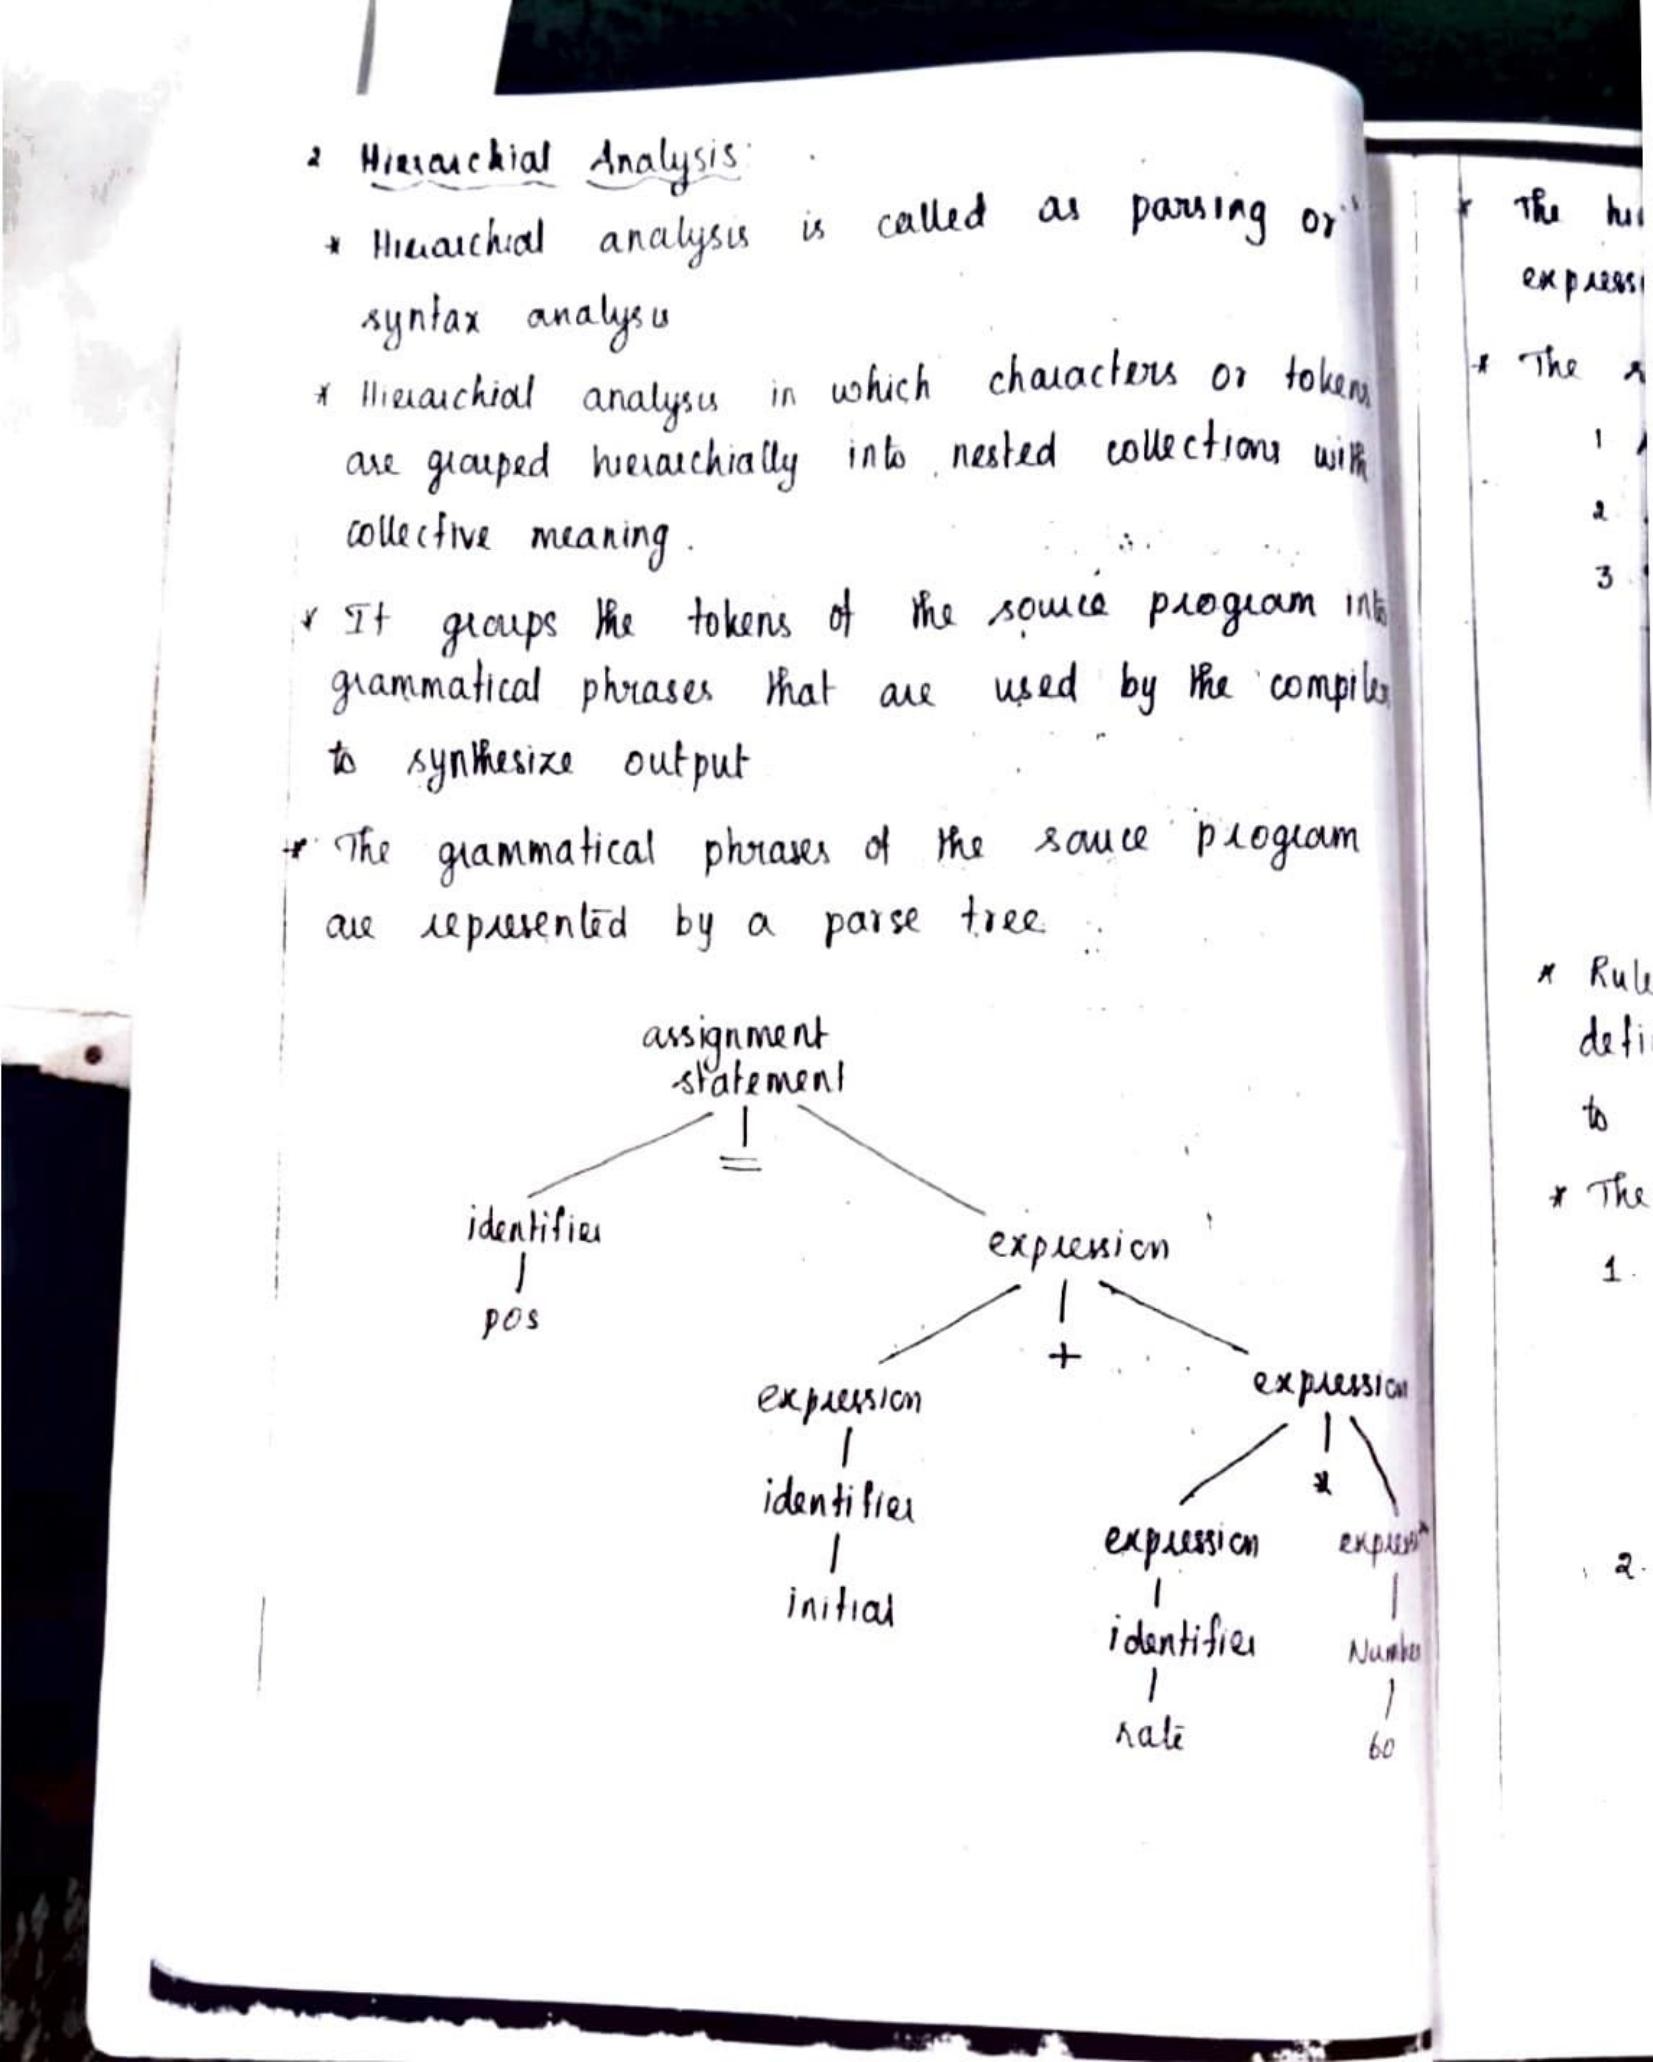 2 Hierarchial Analysis:
* Hierarchial analysis is called as parsing or
syntax analysis
* Hierarchial analysis in which characters or tokens
are grouped hierarchially into nested collections with
collective meaning.
* It groups the tokens of the source program into
grammatical phrases that are used by the compiler
to synthesize output
* The grammatical phrases of the source program
are represented by a parse tree
assignment
statement
=
identifier
expression
pos
+
expression
expression
*
identifier
expression
initial
identifier
Number
rate
60
* The
express
* The
1
2
3
* Rule
defi
to
* The
1.
2.